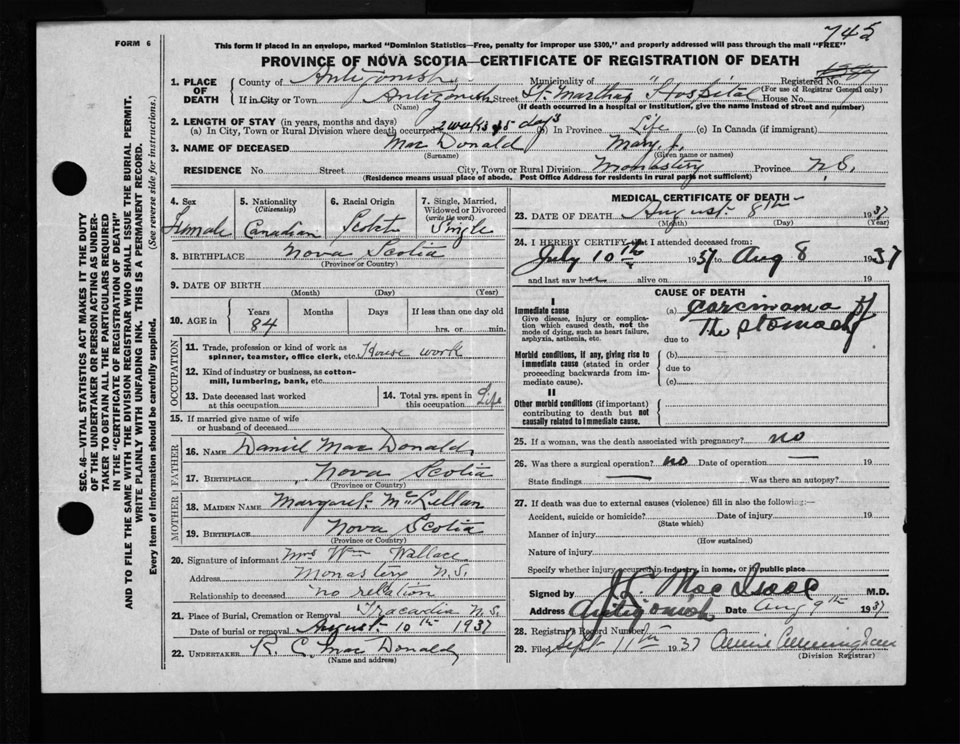 745
FORM 6
This form if placed in an envelope, marked "Dominion Statistics—Free, penalty for improper use $300," and properly addressed will pass through the mail "FREE"
PROVINCE OF NOVA SCOTIA—CERTIFICATE OF REGISTRATION OF DEATH
1. PLACE OF DEATH
County of Antigonish Municipality of Registered No.
(For use of Registrar General only)
If in City or Town Antigonish Street St. Martha's "Hospital" House No.
(Name) (If death occurred in a hospital or institution, give the name instead of street and number)
2. LENGTH OF STAY (in years, months and days)
(a) In City, Town or Rural Division where death occurred 2 weeks 5 days (b) In Province Life (c) In Canada (if immigrant)
3. NAME OF DECEASED Mac Donald Mary J.
(Surname) (Given name or names)
RESIDENCE No. Street City, Town or Rural Division Monastery Province N.S.
(Residence means usual place of abode. Post Office Address for residents in rural parts not sufficient)
4. Sex
Female
5. Nationality
(Citizenship)
Canadian
6. Racial Origin
Scotch
7. Single, Married, Widowed or Divorced
(write the word)
Single
8. BIRTHPLACE Nova Scotia
(Province or Country)
9. DATE OF BIRTH
(Month) (Day) (Year)
10. AGE in Years Months Days If less than one day old
84 hrs. or min.
OCCUPATION
11. Trade, profession or kind of work as
spinner, teamster, office clerk, etc. House work
12. Kind of industry or business, as cotton-
mill, lumbering, bank, etc.
13. Date deceased last worked
at this occupation
14. Total yrs. spent in
this occupation Life
15. If married give name of wife
or husband of deceased
FATHER
16. NAME Daniel Mac Donald
17. BIRTHPLACE Nova Scotia
(Province or Country)
MOTHER
18. MAIDEN NAME Margaret McLellan
19. BIRTHPLACE Nova Scotia
(Province or Country)
20. Signature of informant Mrs Wm Wallace
Address Monastery N.S.
Relationship to deceased no relation
21. Place of Burial, Cremation or Removal Tracadia N.S.
Date of burial or removal August 10th 1937
22. UNDERTAKER R. C. Mac Donald
(Name and address)
MEDICAL CERTIFICATE OF DEATH
23. DATE OF DEATH August 8th 1937
(Month) (Day) (Year)
24. I HEREBY CERTIFY that I attended deceased from:
July 10th 1937 to Aug 8 1937
and last saw her alive on 19
CAUSE OF DEATH
I
Immediate cause
Give disease, injury or complica-
tion which caused death, not the
mode of dying, such as heart failure,
asphyxia, asthenia, etc.
(a) Carcinoma of
The stomach
due to
Morbid conditions, if any, giving rise to
immediate cause (stated in order
proceeding backwards from im-
mediate cause).
(b)
due to
(c)
II
Other morbid conditions (if important)
contributing to death but not
causally related to immediate cause.
25. If a woman, was the death associated with pregnancy? no
26. Was there a surgical operation? no Date of operation — 19
State findings — Was there an autopsy?
27. If death was due to external causes (violence) fill in also the following:—
Accident, suicide or homicide? Date of injury 19
(State which)
Manner of injury
(How sustained)
Nature of injury
Specify whether injury occurred in industry, in home, or in public place
Signed by J. C. Mac Isaac M.D.
Address Antigonish Date Aug 9th 1937
28. Registrar's Record Number
29. Filed Sept 11th 1937 Annie Cunningham
(Division Registrar)
SEC. 46—VITAL STATISTICS ACT MAKES IT THE DUTY
OF THE UNDERTAKER OR PERSON ACTING AS UNDER-
TAKER TO OBTAIN ALL THE PARTICULARS REQUIRED
IN THE "CERTIFICATE OF REGISTRATION OF DEATH"
AND TO FILE THE SAME WITH THE DIVISION REGISTRAR WHO SHALL ISSUE THE BURIAL PERMIT.
WRITE PLAINLY WITH UNFADING INK. THIS IS A PERMANENT RECORD.
Every item of information should be carefully supplied. (See reverse side for instructions.)